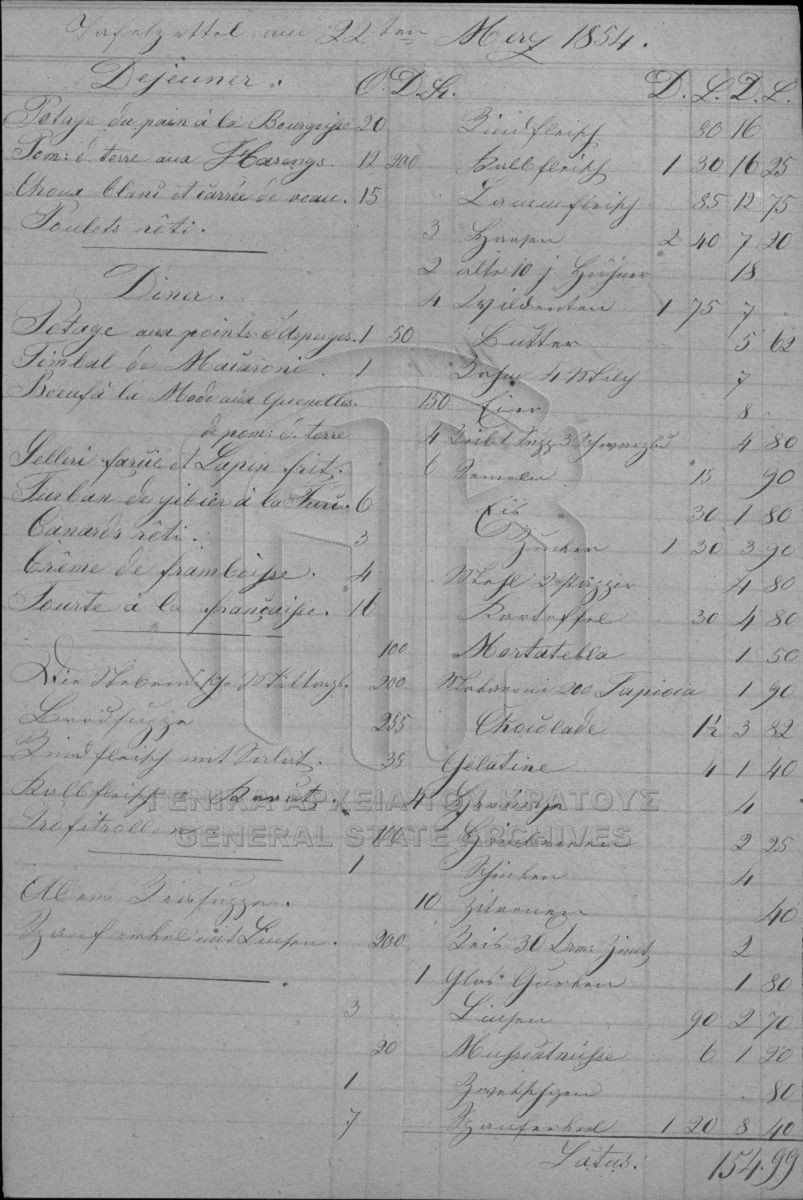 Tafelzettel am 22 ten Merz 1854.
Dejeuner. O. D. St. D. L. D. L.
Potage du pain à la Bourgoise 20 Rindfleisch 80 16
Pom: d. terre aux Harengs. 12 200 Kalbfleisch 1 30 16 25
Choux blanc et carrée de veau. 15 Lammfleisch 85 12 75
Poulets rôti. 3 Haasen 2 40 7 20
2 alte 10 j Hühner 18
Diner. 4 Wildenten 1 75 7
Potage aux points d'Asperges. 1 50 Butter 5 62
Timbal de Macaroni. 1 4 Milch 7
Boeuf à la Mode aux Quenelles. 150 Eier 8
de pom: d. terre 4 3 4 80
Selleri farcie et Lapin frit. 6 Semeln 15 90
Turban de gibier à la 6 Eis 30 1 80
Canards rôti. 3 Zucker 1 30 3 90
Crême de framboise. 4 Mehl 2 4 80
Tourte à la française. 16 Kartoffel 30 4 80
100 Mortatella 1 50
Die Mittags. 200 Makaroni 200 Tapioca 1 90
Brodsuppe 255 Choculade 1½ 3 82
Rindfleisch mit 35 Gelatine 4 1 40
Kalbfleisch 4 4
Profitrollen 2 25
1 Schinken 4
Abens Reissuppe. 10 Zitronen 40
Spanferkel mit Linsen. 200 Reis 30 Drm: Zimt 2
1 Glas Gurken 1 80
3 Linsen 90 2 70
20 Muscatnüsse 6 1 20
1 Zwetschgen 80
7 Spanferkel 1 20 8 40
Latus: 154.99
ΓΕΝΙΚΑ ΑΡΧΕΙΑ ΤΟΥ ΚΡΑΤΟΥΣ
GENERAL STATE ARCHIVES